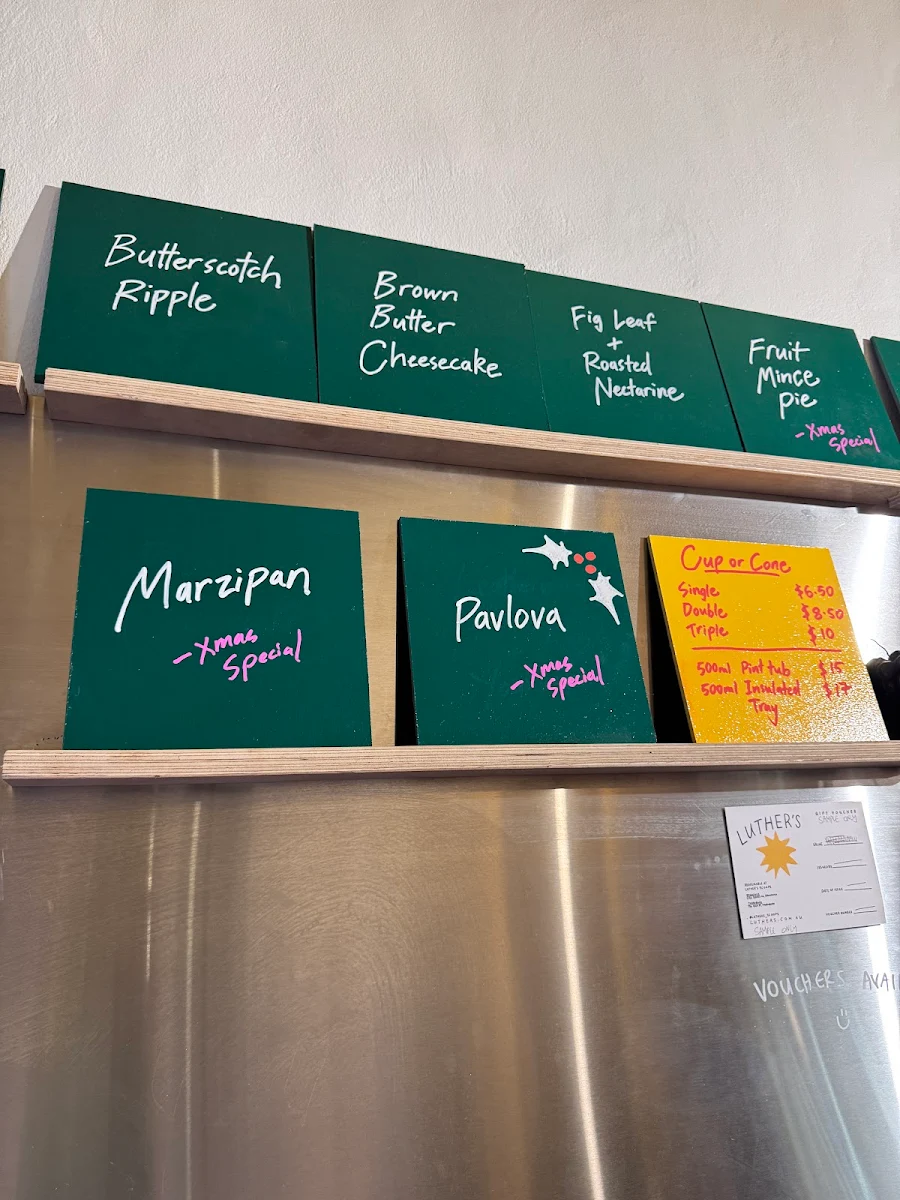 Butterscotch
Ripple
Brown
Butter
Cheesecake
Fig Leaf
+
Roasted
Nectarine
Fruit
Mince
Pie
-Xmas
Special
Marzipan
-Xmas
Special
Pavlova
-Xmas
Special
Cup or Cone
Single $6.50
Double $8.50
Triple $10
500ml Pint tub $15
500ml Insulated $17
Tray
LUTHER'S
GIFT VOUCHER
SAMPLE ONLY
LUTHERS.COM.AU
SAMPLE ONLY
VOUCHERS AVAI